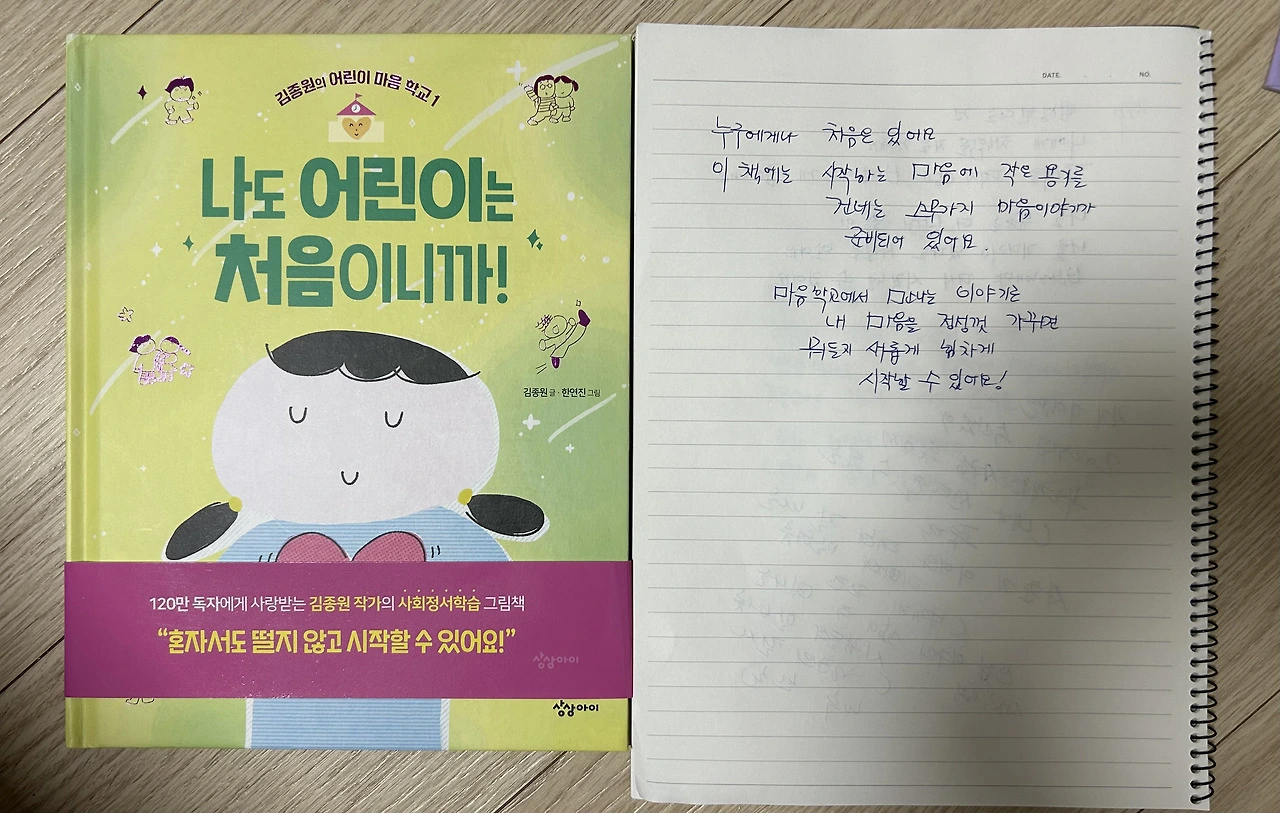 김종원의 어린이 마음 학교 1
나도 어린이는
처음이니까!
김종원 글 · 한연진 그림
120만 독자에게 사랑받는 김종원 작가의 사회정서학습 그림책
“혼자서도 떨지 않고 시작할 수 있어요!”
상상아이
상상아이
DATE. NO.
누구에게나 처음은 있어요
이 책에는 시작하는 마음에 작은 용기를
건네는 스무가지 마음이야기가
준비되어 있어요.
마음학교에서 만나는 이야기로
내 마음을 정성껏 가꾸면
뭐든지 새롭게 힘차게
시작할 수 있어요!